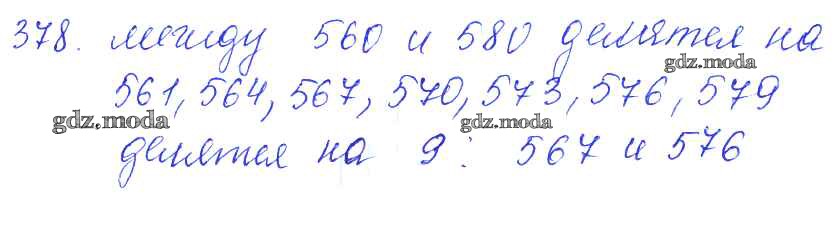 378. между 560 и 580 делятся на
gdz.moda
561, 564, 567, 570, 573, 576, 579
gdz.moda
gdz.moda
делятся на 9: 567 и 576